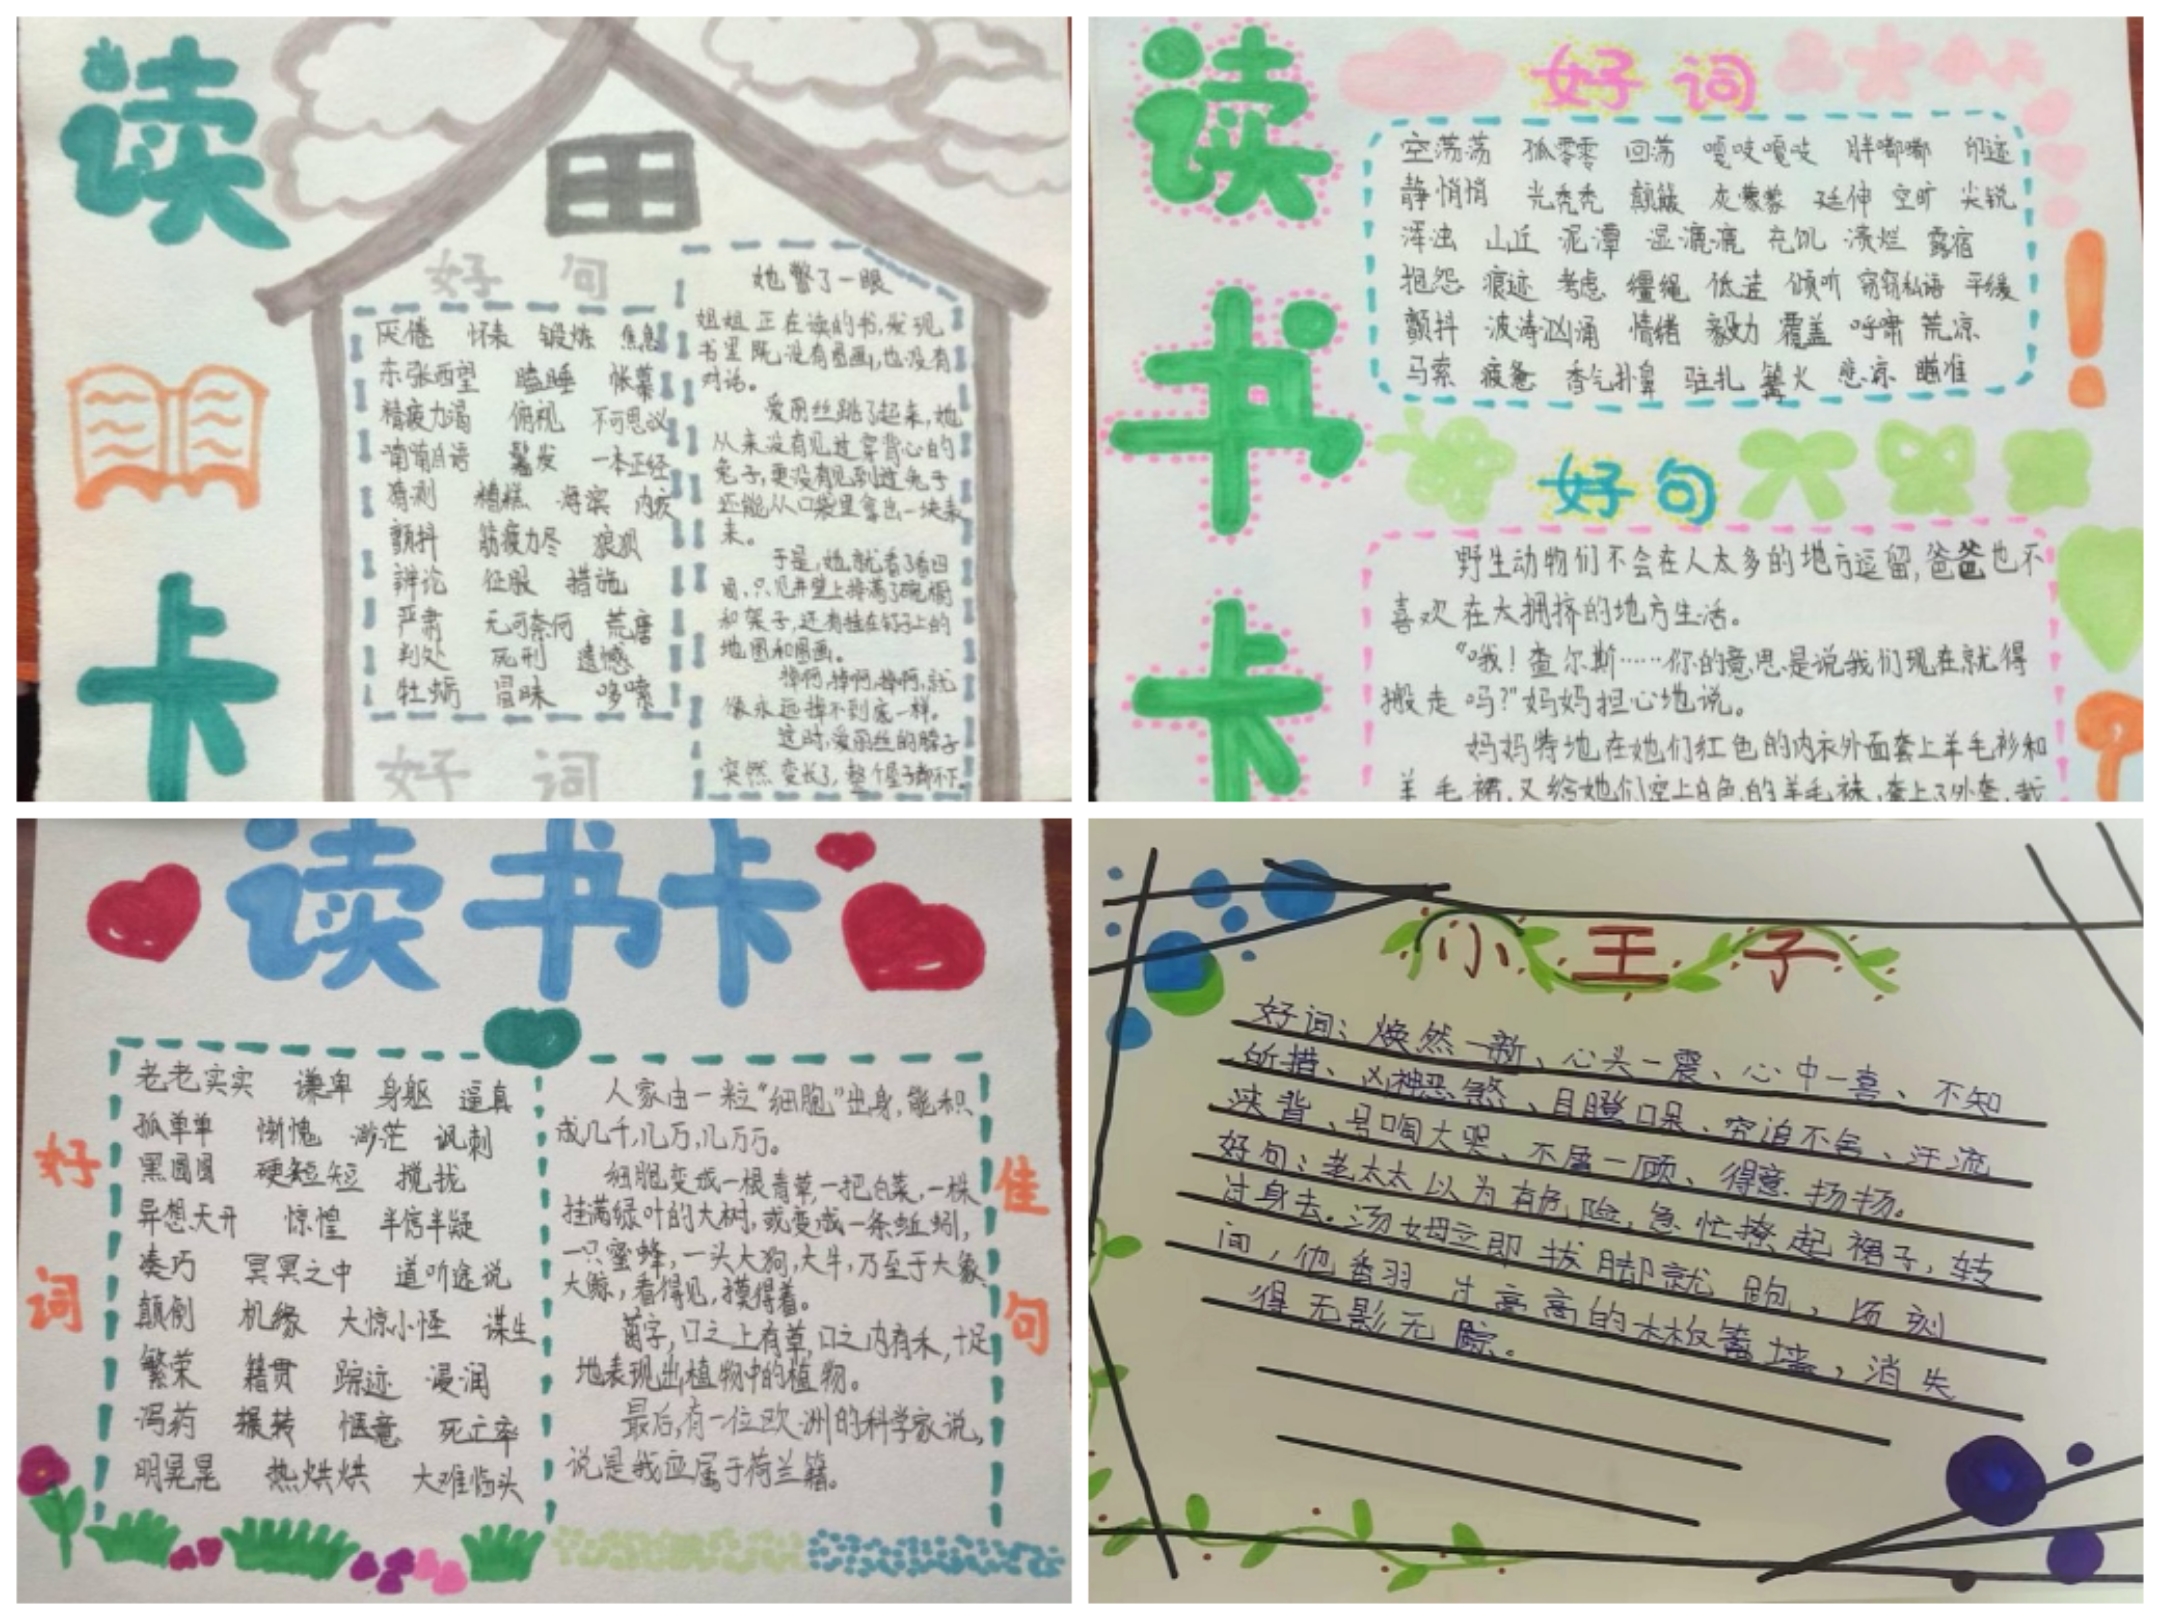 读
卡
好句
厌倦 怀表 锻炼 焦急
东张西望 瞌睡 帐幕
精疲力渴 俯视 不可思议
喃喃自语 鬈发 一本正经
猜测 糟糕 海滨 内疚
颤抖 筋疲力尽 狼狈
辩论 征服 措施
严肃 无可奈何 荒唐
判处 死刑 遗憾
牡蛎 冒昧 哆嗦
好词
她瞥了一眼
姐姐正在读的书,发现
书里既没有图画,也没有
对话。
爱丽丝跳了起来,她
从来没有见过穿背心的
兔子,更没有见到过兔子
还能从口袋里拿出一块表
来。
于是,她就看了看四
周,只见井壁上排满了碗橱
和架子,还有挂在钉子上的
地图和图画。
掉啊,掉啊,掉啊,就
像永远掉不到底一样。
这时,爱丽丝的脖子
突然变长了,整个屋子都不下
读
书
卡
好词
空荡荡 孤零零 回荡 嘎吱嘎吱 胖嘟嘟 印迹
静悄悄 光秃秃 颠簸 灰蒙蒙 延伸 空旷 尖锐
浑浊 山丘 泥潭 湿漉漉 充饥 溃烂 露宿
抱怨 痕迹 考虑 缰绳 低洼 倾听 窃窃私语 平缓
颤抖 波涛汹涌 情绪 毅力 覆盖 呼啸 荒凉
马索 疲惫 香气扑鼻 驻扎 篝火 悲凉 瞄准
好句
野生动物们不会在人太多的地方逗留,爸爸也不
喜欢在太拥挤的地方生活。
“哦!查尔斯……你的意思是说我们现在就得
搬走吗?”妈妈担心地说。
妈妈特地在她们红色的内衣外面套上羊毛衫和
羊毛裙,又给她们穿上白色的羊毛袜,套上了外套,戴
读书卡
好词
老老实实 谦卑 身躯 逼真
孤单单 惭愧 渺茫 讽刺
黑圆圆 硬短短 搅扰
异想天开 惊惶 半信半疑
凑巧 冥冥之中 道听途说
颠倒 机缘 大惊小怪 谋生
繁荣 籍贯 踪迹 浸润
泻药 辗转 惬意 死亡率
明晃晃 热烘烘 大难临头
佳句
人家由一粒“细胞”出身,能积
成几千,几万,几万万。
细胞变成一根青草,一把白菜,一株
挂满绿叶的大树,或变成一条蚯蚓,
一只蜜蜂,一头大狗,大牛,乃至于大象
大鲸,看得见,摸得着。
菌字,口之上有草,口之内有禾,十足
地表现出植物中的植物。
最后,有一位欧洲的科学家说,
说是我应属于荷兰籍。
小王子
好词：焕然一新、心头一震、心中一喜、不知
所措、凶神恶煞、目瞪口呆、穷追不舍、汗流
浃背、号啕大哭、不屑一顾、得意扬扬。
好句：老太太以为有危险,急忙撩起裙子,转
过身去。汤姆立即拔脚就跑,顷刻
间,他翻过高高的木板篱墙,消失
得无影无踪。